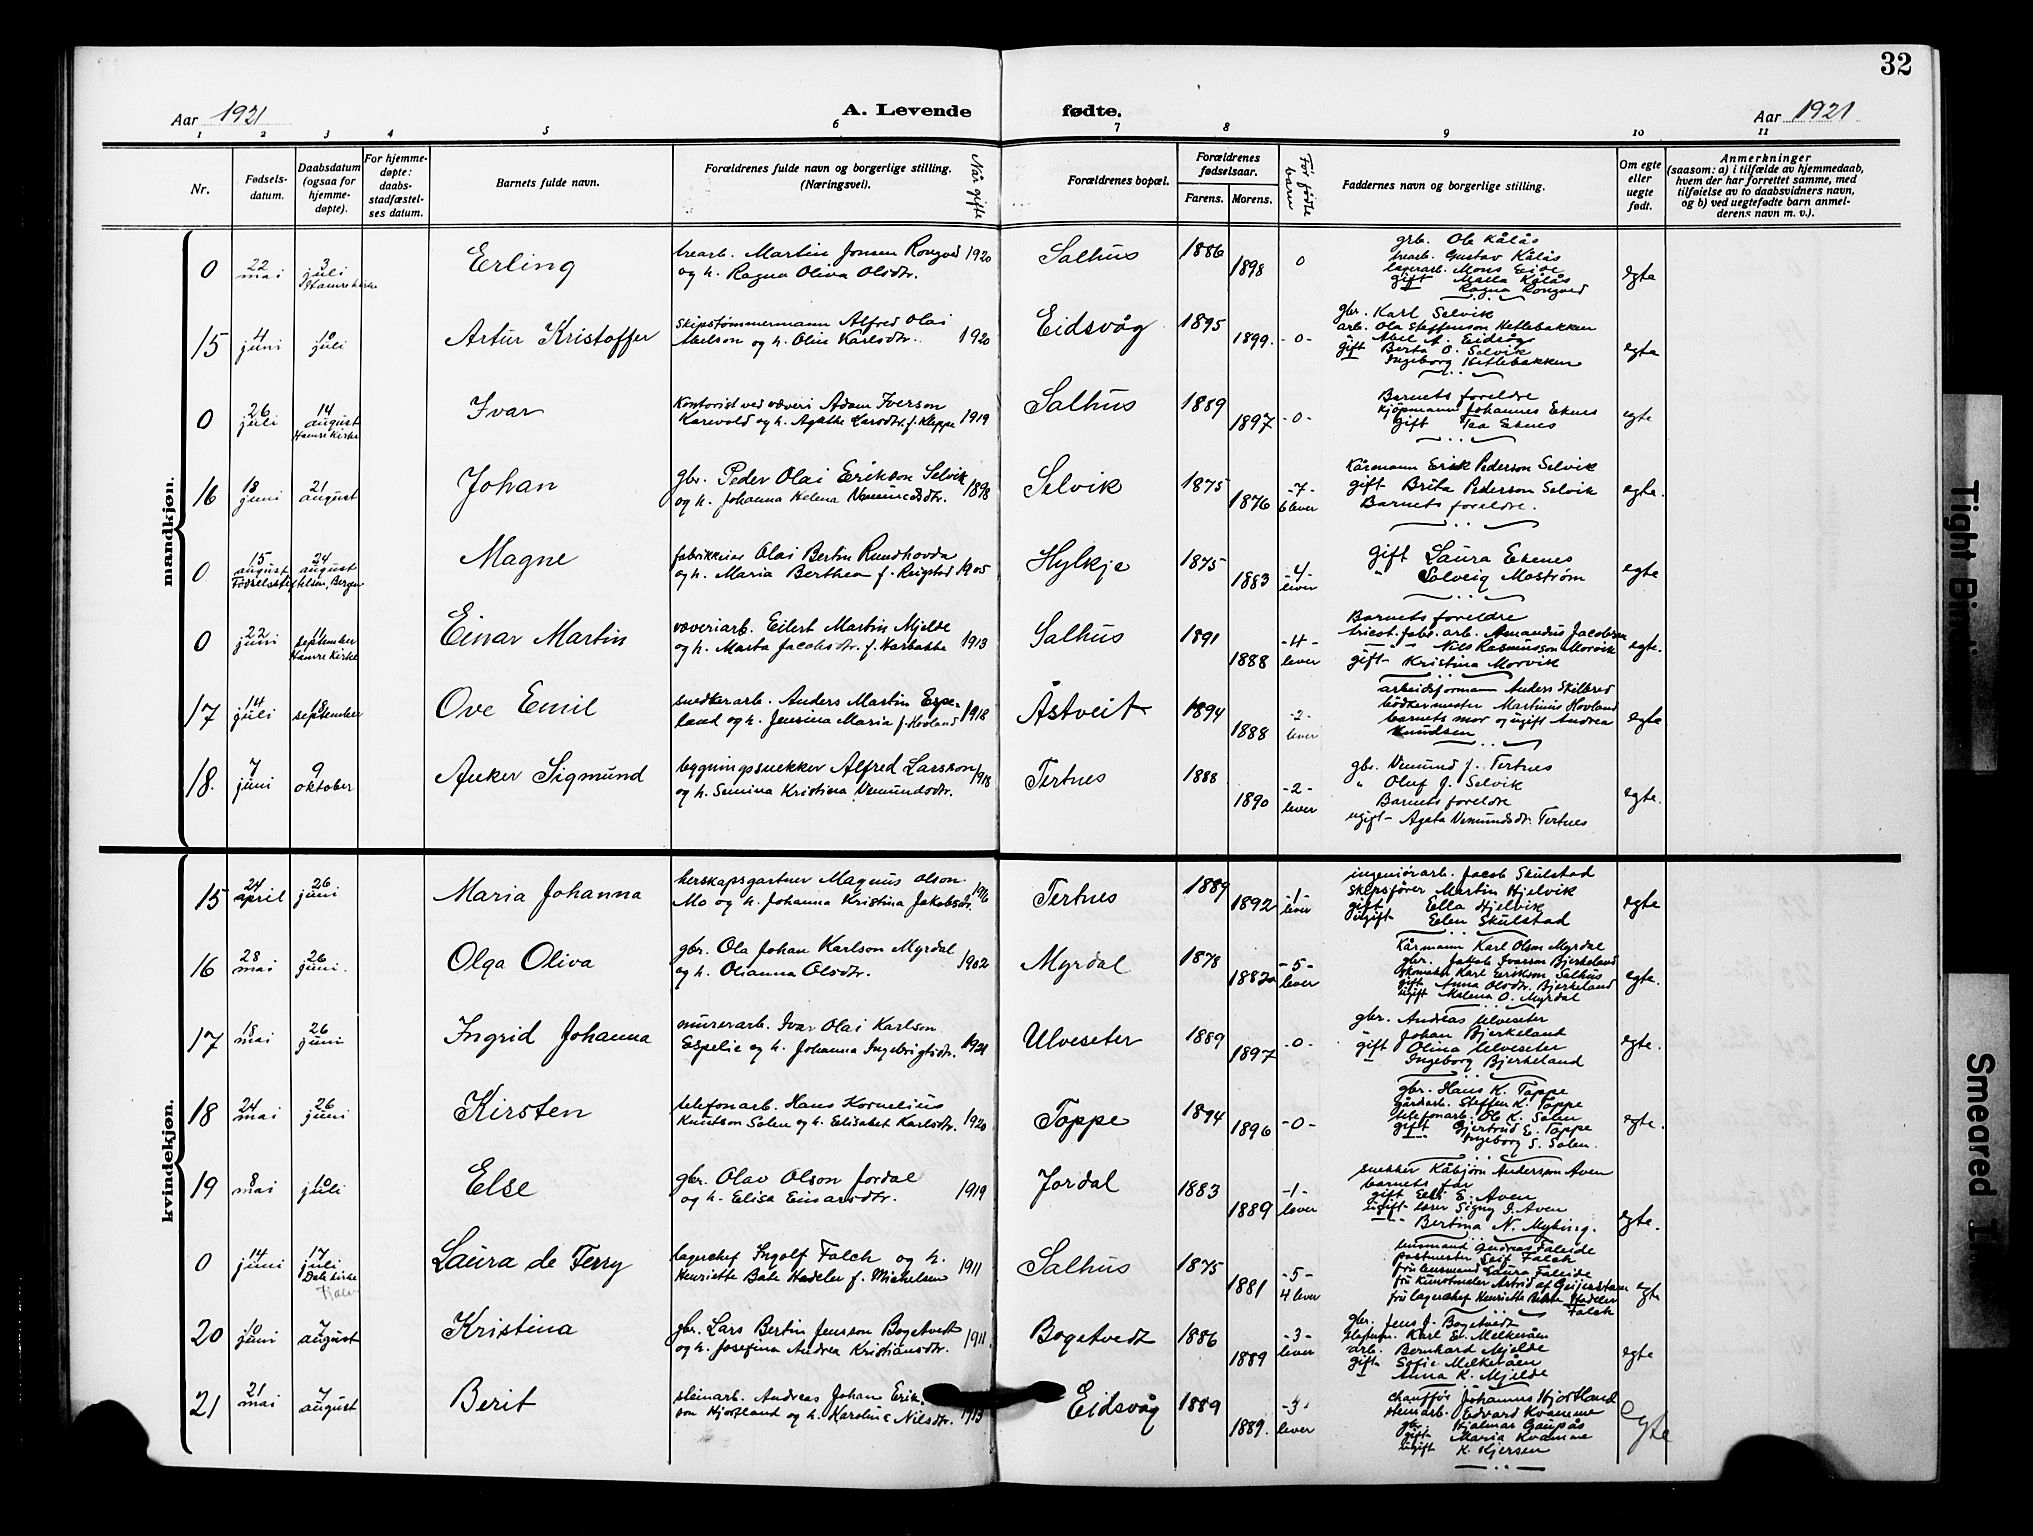 32
Aar 1921
A. Levende fødte.
Aar 1921
1 2 3 4 5 6 7 8 9 10 11
Nr.
Fødsels-
datum.
Daabsdatum
(ogsaa for
hjemme-
døpte).
For hjemme-
døpte:
daabs-
stadfæstel-
ses datum.
Barnets fulde navn.
Forældrenes fulde navn og borgerlige stilling.
(Næringsvei).
Når gifte
Forældrenes bopæl.
Forældrenes
fødselsaar.
Farens. Morens.
Før fødte
barn
Faddernes navn og borgerlige stilling.
Om egte
eller
uegte
født.
Anmerkninger
(saasom: a) i tilfælde av hjemmedaab,
hvem der har forrettet samme, med
tilføielse av to daabsvidners navn,
og b) ved uegtefødte barn anmel-
derens navn m. v.).
mandkjøn.
0
22
mai
3
juli
Hamre kirke
Erling
Martin Jonsen Rongved
og h. Ragna Oliva Olsdtr.
1920
Salhus
1886
1898
0
gbr. Ole Kålås
Gustav Kålås
Mons Eide
gift Malla Kålås
Ragna Rongved
egte
15
4
juni
10
juli
Artur Kristoffer
skipstømmermann Alfred Olai
Abelson og h. Olin Karlsdtr.
1920
Eidsvåg
1895
1899.
-0-
gbr. Karl Selvik
arb. Ola Steffenson Hetlebakken
Abel A. Eidsvåg
gift Berta O. Selvik
Ingeborg Hetlebakken
egte
0
26
juli
14
august
Hamre Kirke
Ivar
Kontorist ved væveri Adam Iverson
Karevold og h. Agathe Larsdtr. f. Kleppe
1919
Salhus
1889
1897
-0-
Barnets foreldre
Kjøpmann Johannes Eknes
gift Tea Eknes
egte
16
18
juni
21
august
Johan
gbr. Peder Olai Erikson Selvik
og h. Johanna Helena Vemundsdtr.
1898
Selvik
1875
1876
-7-
6 lever
Kårmann Erik Pederson Selvik
gift Brita Pederson Selvik
Barnets foreldre.
egte.
0
15
august
24
august
Fødselsstiftelsen, Bergen
Magne
fabrikkeier Olai Bertin Rundhovda
og h. Maria Berthea f. Reigstad
1905
Hylkje
1875
1883
-4-
lever
gift Laura Eknes
" Solveig Mostrøm
egte
0
22
juni
11
september
Hamre Kirke
Einar Martin
væveriarb. Eilert Martin Mjelde
og h. Marta Jacobsdtr. f. Harbakke
1913
Salhus
1891
1888
-4-
lever
Barnets foreldre
tricot.fabr. arb. Amandus Jacobsen
Nils Rasmusson Morvik
gift Kristina Morvik
egte.
17
14
juli
18
september
Ove Emil
snedkerarb. Anders Martin Espe-
land og h. Jensina Maria f. Hovland
1918
Åstveit
1894
1888
-2-
lever
arbeidsformann Anders Skilbred
bødkermester Martinus Hovland
barnets mor og ugift Andrea
Knudsen
egte
18.
7
juni
9
oktober
Anker Sigmund
bygningssnekker Alfred Larsson
og h. Semina Kristina Vemundsdtr.
1918
Tertnes
1888
1890
-2-
lever
gbr. Vemund J. Tertnes
" Oluf J. Selvik
Barnets foreldre
ugift Agata Vemundsdtr. Tertnes
egte.
kvindekjøn.
15
24
april
26
juni
Maria Johanna
herskapsgartner Magnus Olson
Mo og h. Johanna Kristina Jakobsdtr.
Tertnes
1889
1892
-1-
lever
ingeniørarb. Jacob Skulstad
Skipsfører Martin Hjelvik
gift Ella Hjelvik
ugift Elen Skulstad
egte
16
28
mai
26
juni.
Olga Oliva
gbr. Ola Johan Karlson Myrdal
og h. Olianna Olsdtr.
1902
Myrdal
1878
1882
-5-
lever
Kårmann Karl Olson Myrdal
gbr. Jakob Ivarson Bjerkeland
Karl Erikson Salhus
gift Anna Olsdtr. Bjerkeland
ugift Malena O. Myrdal
egte.
17
18
mai
26
juni
Ingrid Johanna
murerarb. Ivar Olai Karlson
Espelie og h. Johanna Ingebrigtsdtr.
1921
Ulveseter
1889
1897
-0-
gbr. Andreas Ulveseter
Johan Bjerkeland
gift Olina Ulveseter
Ingeborg Bjerkeland
egte.
18
24
mai
26
juni
Kirsten
telefonarb. Hans Kornelius
Knutson Solen og h. Elisabet Karlsdtr.
1920
Toppe
1894
1896
-0-
gbr. Hans K. Toppe
gårdarb. Steffen K. Toppe
telefonarb. Ole K. Solen
gift Gjertrud E. Toppe
Ingeborg S. Solen.
egte.
19
8
mai
10
juli
Else
gbr. Olav Olson Jordal
og h. Elisa Einarsdtr.
1919
Jordal
1883
1889
-1-
lever
snekker Kåbjørn Anderson Aven
barnets far
gift Elli E. Aven
ugift Signy I. Aven
Bertina N. Myking.
egte.
0
14
juni
17
juli
Dale kirke
Fjaler
Laura de Ferry
lagerchef Ingolf Falch og h.
Henriette Bole Hadeler f. Michelsen
1911
Salhus
1875
1881
-5-
4 lever
lensmand Andreas Faleide
postmester Leif Falch
fru lensmand Laura Faleide
fru Kunstmaler Astrid af Geijerstam
fru lagerchef Henriette Hadeler
Falch
egte
20
10
juni
7
august
Kristina
gbr. Lars Bertin Jensson Bogetvedt
og h. Josefina Andrea Kristiansdtr.
1911
Bogetvedt
1886
1889
-3-
lever
gbr. Jens J. Bogetvedt
Karl E. Melkeråen
arb. Bernhard Mjelde
gift Sofie Melkeråen
Anna K. Mjelde
egte
21
21
mai
7
august
Berit
steinarb. Andreas Johan Erik-
son Hjortland og h. Karoline Nilsdtr.
1913
Eidsvåg
1889
1889.
lever
chauffør Johannes Hjortland
steinarb. Edvard Kvamme
gbr. Hjalmar Gaupås
gift Maria Kvamme
ugift K. Kjersen
egte
Tight Bin
Smeared